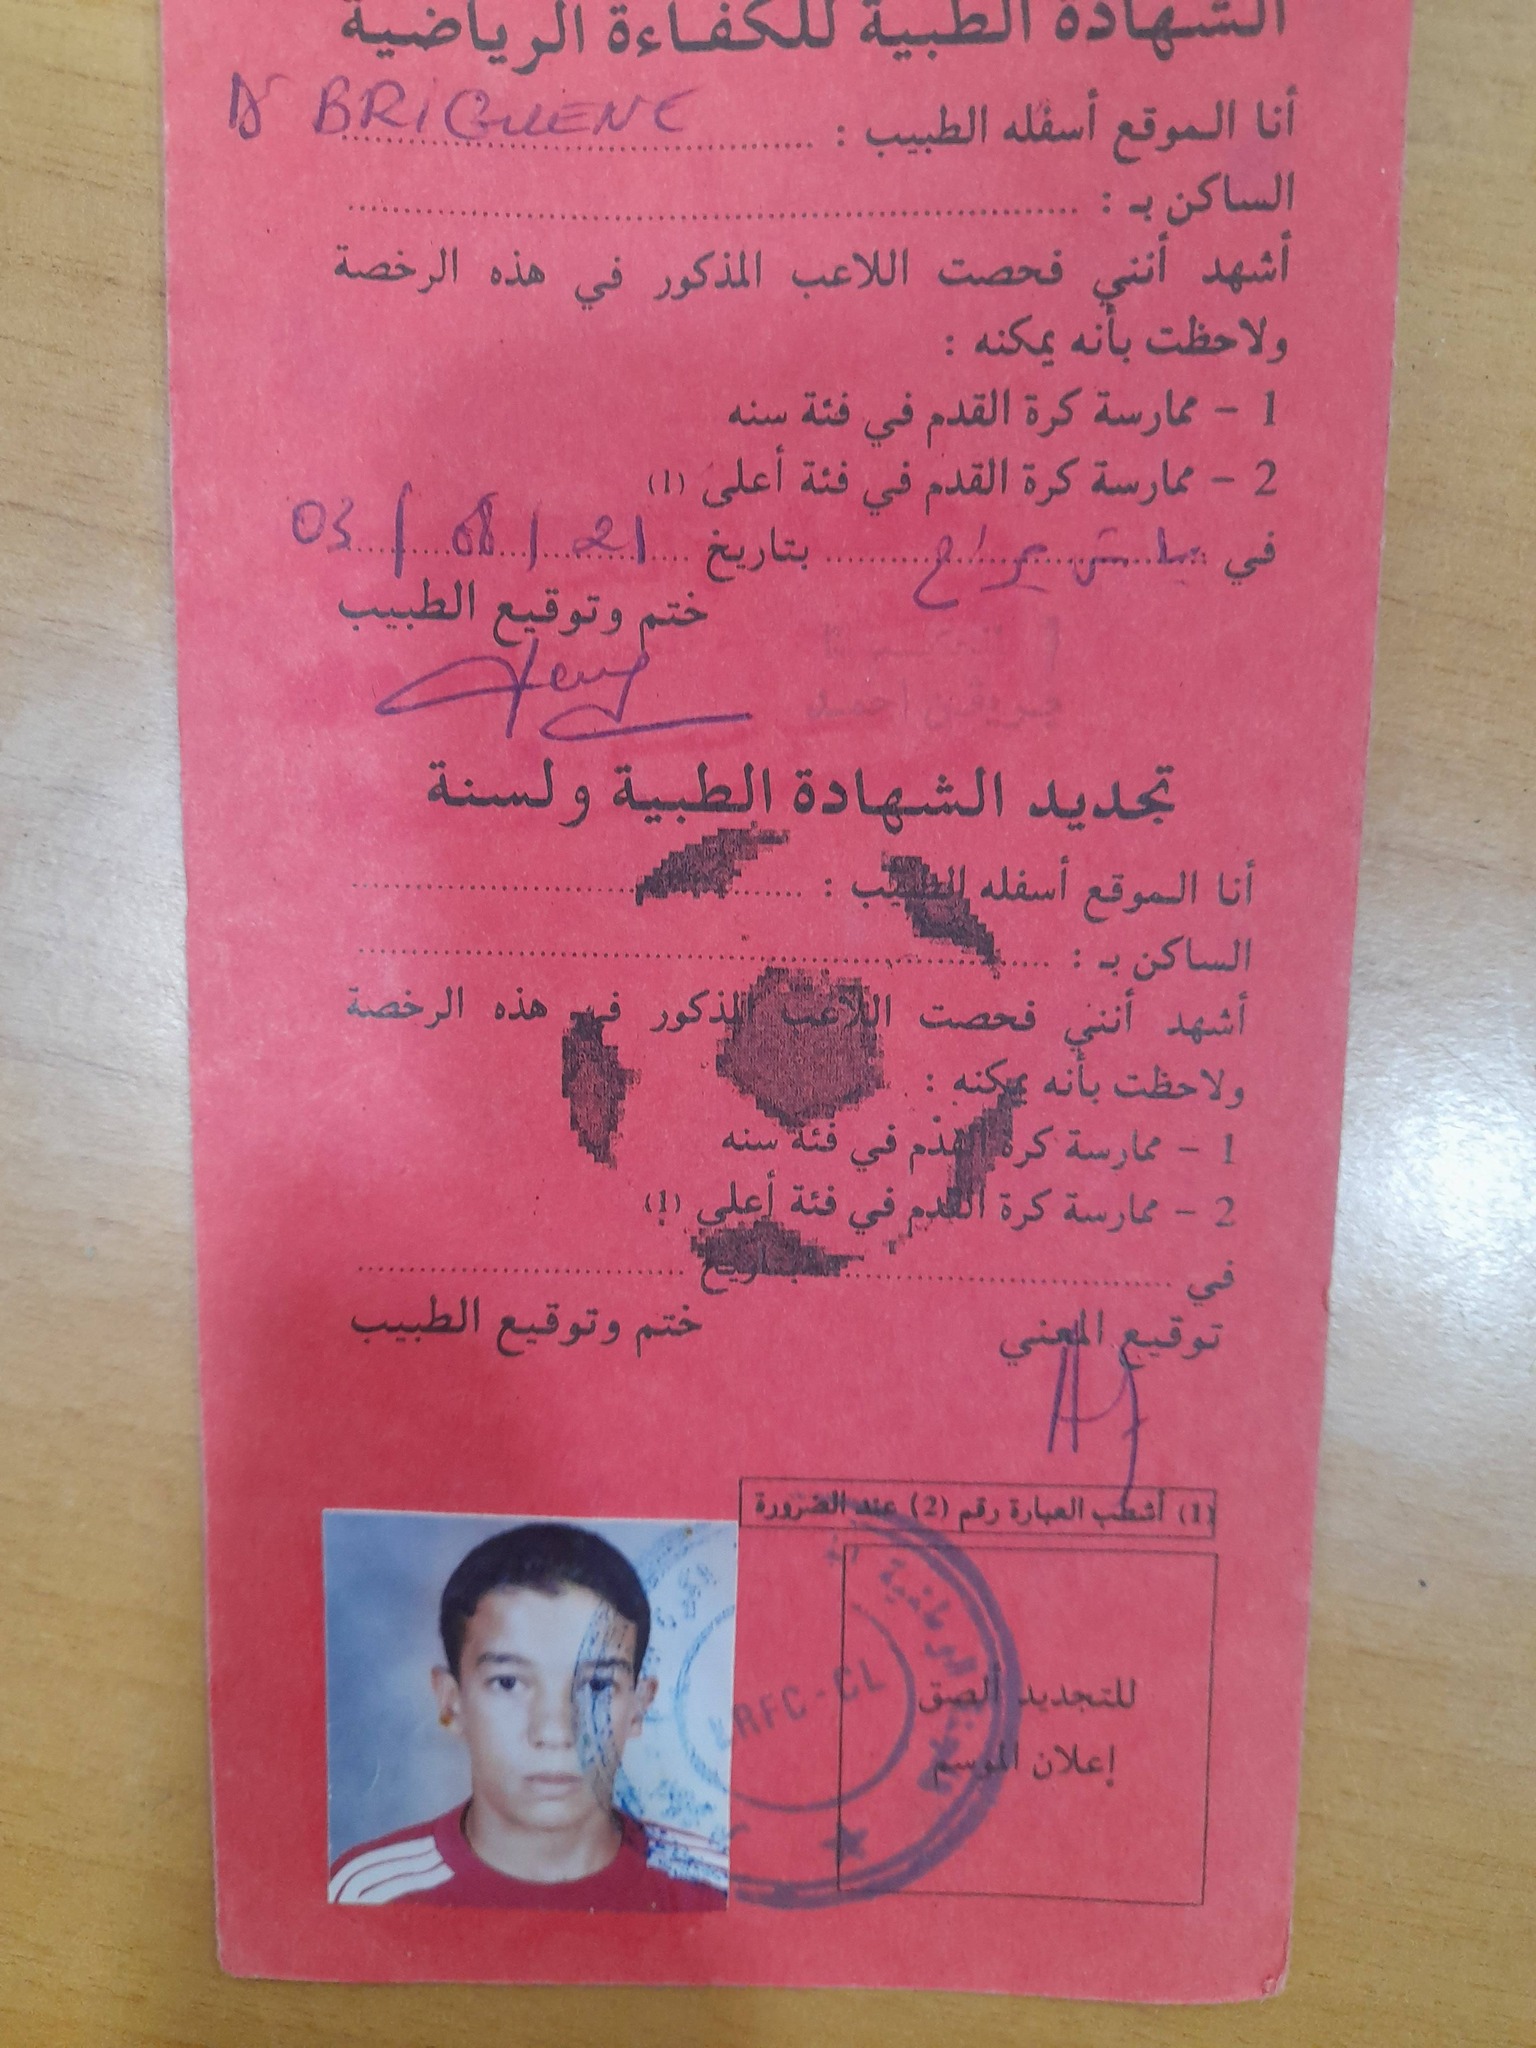 الشهادة الطبية للكفاءة الرياضية
أنا الموقع أسفله الطبيب : Dr BRIGUENE
الساكن بـ :
أشهد أنني فحصت اللاعب المذكور في هذه الرخصة
ولاحظت بأنه يمكنه :
1 - ممارسة كرة القدم في فئة سنه
2 - ممارسة كرة القدم في فئة أعلى (1)
في بتاريخ 03/08/21
ختم وتوقيع الطبيب
تجديد الشهادة الطبية ولسنة
أنا الموقع أسفله الطبيب :
الساكن بـ :
أشهد أنني فحصت اللاعب المذكور في هذه الرخصة
ولاحظت بأنه يمكنه :
1 - ممارسة كرة القدم في فئة سنه
2 - ممارسة كرة القدم في فئة أعلى (1)
في بتاريخ
توقيع المعني ختم وتوقيع الطبيب
(1) أشطب العبارة رقم (2) عند الضرورة
للتجديد ألصق
إعلان الموسم
الوطنية
RFC-CL